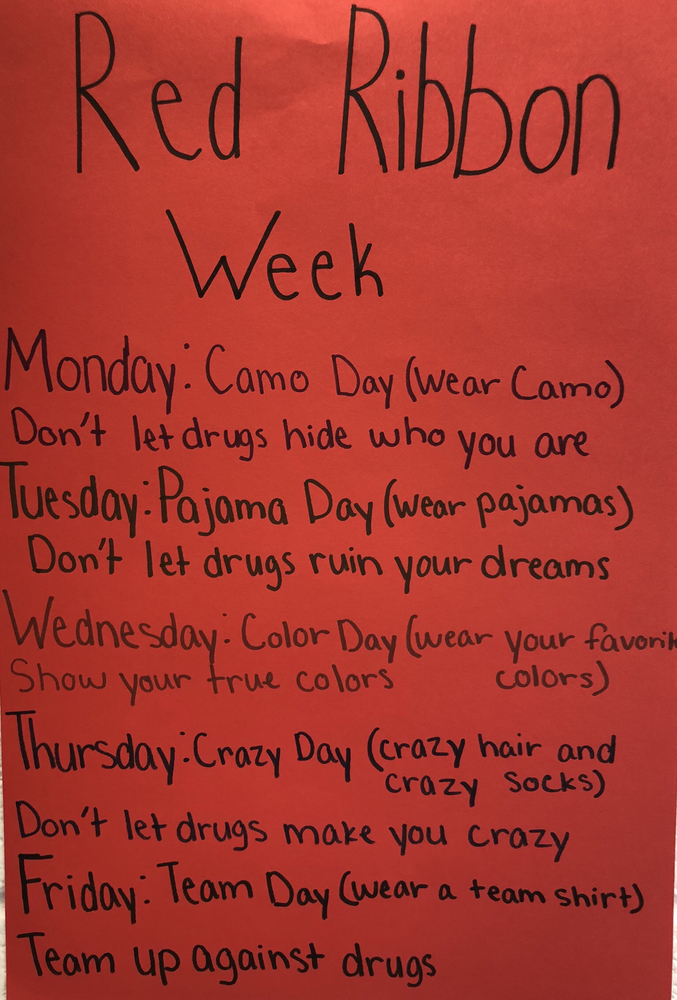 Red Ribbon
Week
Monday: Camo Day (wear Camo)
Don't let drugs hide who you are
Tuesday: Pajama Day (wear pajamas)
Don't let drugs ruin your dreams
Wednesday: Color Day (wear your favorit
Show your true colors colors)
Thursday: Crazy Day (crazy hair and
crazy socks)
Don't let drugs make you crazy
Friday: Team Day (wear a team shirt)
Team up against drugs